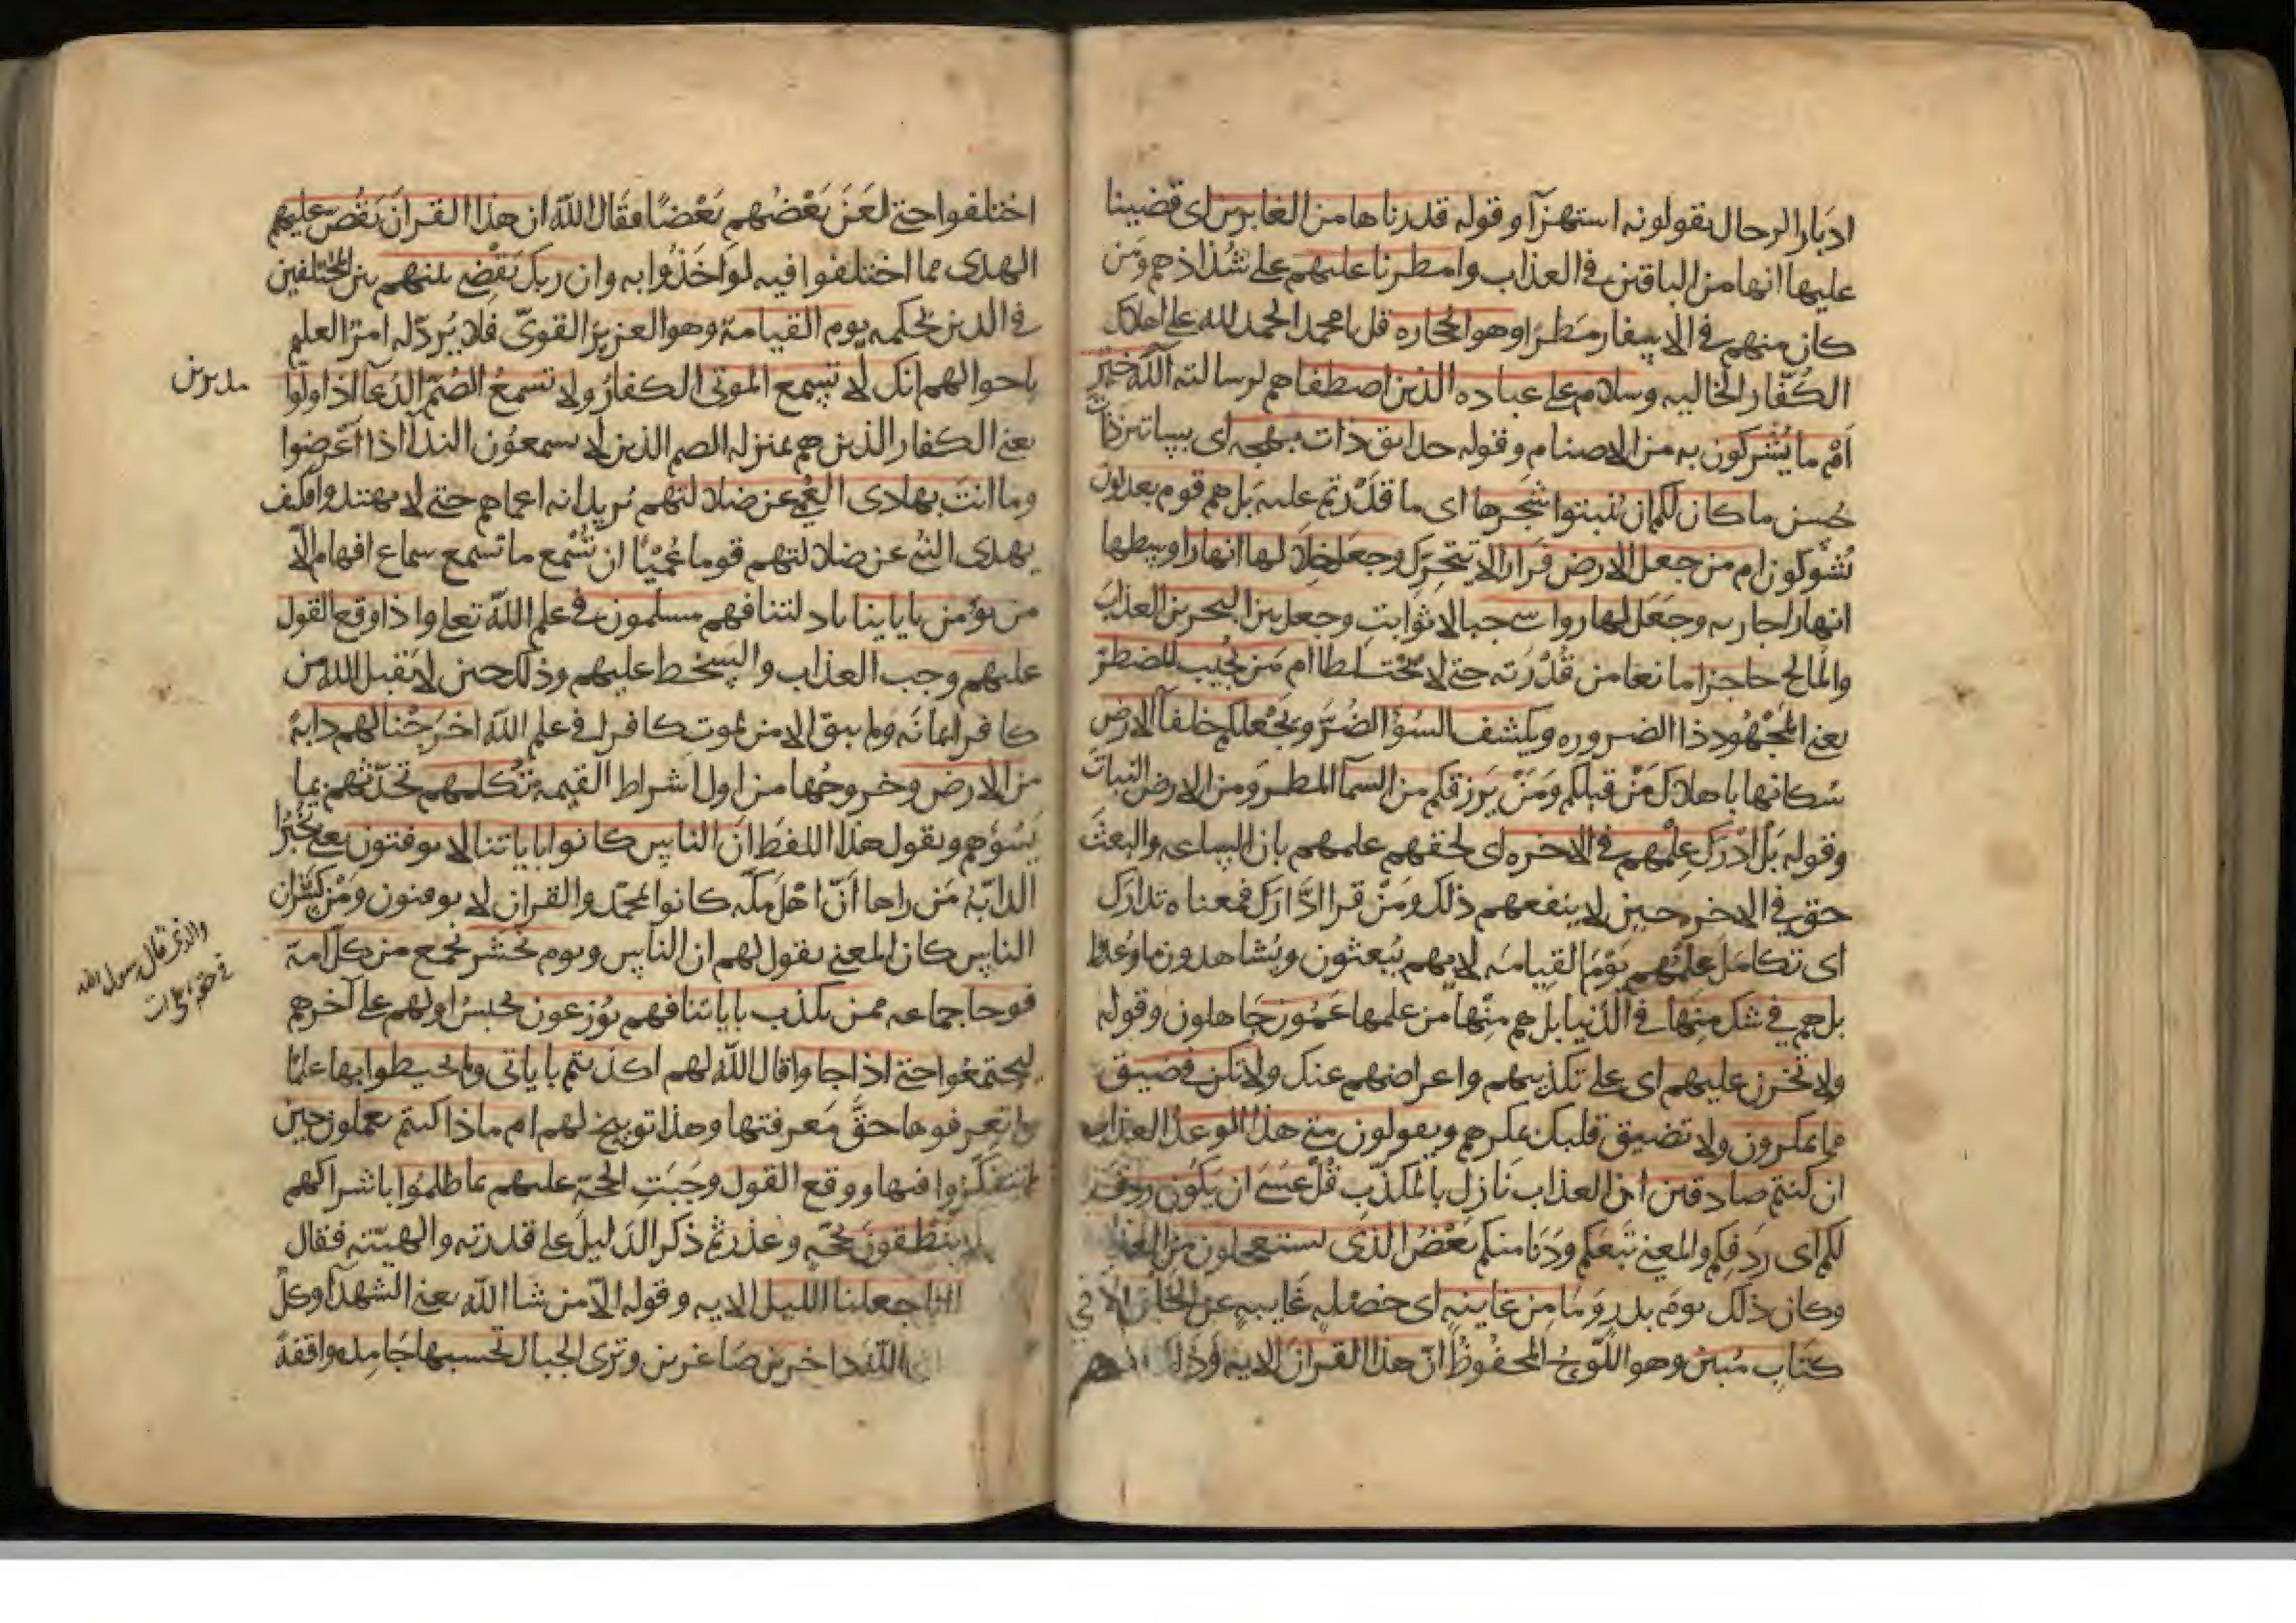 ادبار الرجال يقولونه استهزآ وقوله قدرناها من الغابرين اى قضينا
عليها انها من الباقين فى العذاب وامطرنا عليهم على شذاذهم ومن
كان منهم فى الاسفار مطرا وهو الحجاره قل يا محمد الحمد لله على اهلاك
الكفّار الخاليه وسلام على عباده الذين اصطفاهم لرسالته آلله خير
اَمْ ما يُشركون به من الاصنام وقوله حدايق ذات بهجه اى بساتين ذات
حُسن ما كان لكم ان تنبتوا شجرها اى ما قدرتم عليه بل هم قوم يعدلون
يُشركون ام من جعل الارض قرارا لا تتحرك وجعل خلالها انهارا وسطها
انهار اجاريه وجَعَل لها رواسى جبالا ثوابت وجعل بين البحرين العذب
والمالح حاجزا مانعا من قُدْرَته حتى لا يختلطا ام مَن يُجيب المضطر
يعنى المَجْهُود ذا الضروره ويكشف السُوٓ الضُرَّ ويجْعلكم خلفآ الارض
سُكانها باهلاك مَنْ قبلكم وَمَنْ يَرزقكم من السمآ المطر وَمن الارض النبات
وقوله بَل ادّرَكَ عِلْمُهم فى الاخره اى لحقهم علمهم بان الساعه والبعث
حق فى الاخره حين لا ينفعهم ذلك ومَنْ قرا ادَّارَكَ فمعناه تدارك
اى تكامَل علمُهم يَوْمَ القيامه لانهم يُبعثون ويُشاهدون ما وُعدوا
بل هم فى شك منها فى الدُنيا بل هم منها من علمها عَمُون جَاهلون وقوله
ولا تحزن عليهم اى على تكذيبهم واعراضهم عنك ولا تكن فى ضيق
مما يمكرون ولا تضيق قلبك بمكرهم ويقولون متى هذا الوعد العذاب
ان كنتم صادقين انّ العذاب نَازل بالمكذّب قُلْ عَسَى ان يَكُون ردِفَ
لكم اى ردفكم والمعنى تَبعَكم ودَنا منكم بَعْضُ الذى تستعجلون من العذاب
وكان ذلك يومَ بدر وَمَا مِن غايبه اى خصْلهٍ غايبهٍ عن الخلق الا فى
كتاب مبين وهو اللَّوحُ المحفوظ انّ هذا القران الايه وَذلك انهم
اختلفوا حتى لَعَنَ بَعْضُهم بَعْضًا فقال الله ان هذا القران يَقُص عليهم
الهدى مما اختلفوا فيه لو اخَذُوا به وان ربك يَقْضِى بينهم بين المختلفين
فى الدين بحكمه يوم القيامة وهو العزيز القوىّ فلا يُردّ له امرٌ العليم
باحوالهم انك لا تسمع الموتى الكفارَ ولا تسمعُ الصُمّ الدُعآ اذا ولّوا
مدبرين
يعنى الكفار الذين هم بمنزله الصم الذين لا يسمعُون الندآ اذا اعْرضوا
وما انتَ بهادى العُمى عن ضلالتهم نُريد انه اعماهم حتى لا يهتدوا فكيف
يهدى النبى عن ضلالتهم قوما عُمْيًا ان تُسْمع ما تسمع سماع افهام الّا
من يؤمن باياتنا بادلتنا فهم مسلمون فى علم الله تعلى واذا وقع القول
عليهم وجب العذاب والسخط عليهم وذلك حين لا يَقبل الله من
كافر ايمانَه ولم يبق الا من يموت كافرا فى علم الله اخرَجْنا لهم دابةً
من الارض وخروجُها من اول اشراط القيمه تُكلمهم تحَدّثُهم بما
يَسُوٓهم وتقول هذا اللفظ انَّ الناس كانوا باياتنا لا يوقنون يعنى تُخْبرُ
الدابّهُ مَن راها اَنّ اهْلَ مكّه كانوا بمحمّد والقران لا يوقنون ومَنْ كسَر ان
الناس كان المعنى تقول لهم ان الناس ويوم نحْشر نجمع من كلّ امة
والذى قال رسول الله
فى حقه
فوجا جماعه ممن يكذب باياتنا فهم يُوزعون يُحبسُ اولهم على آخرهم
ليجتمعُوا حتى اذا جاوا قال الله لهم اكذبتم باياتى ولم تحيطوا بها علمًا
ولم تعرفوها حقَّ مَعرفتها وهذا توبيخ لهم ام ماذا كنتم تعملون حين
لم تتفكّروا فيها ووقع القول وجَبَتِ الحجّة عليهم بما ظلمُوا باشراكهم
لا ينْطقون بحجّهٍ وعذر ثمّ ذكر الدَليلَ على قدرته والهيّته فقال
انا جعلنا الليل الايه وقوله الّا من شا الله يعنى الشهدآ وكلٌ
الله داخرين صَاغرين وتَرى الجبالَ تحسبها جَامِده واقفةً